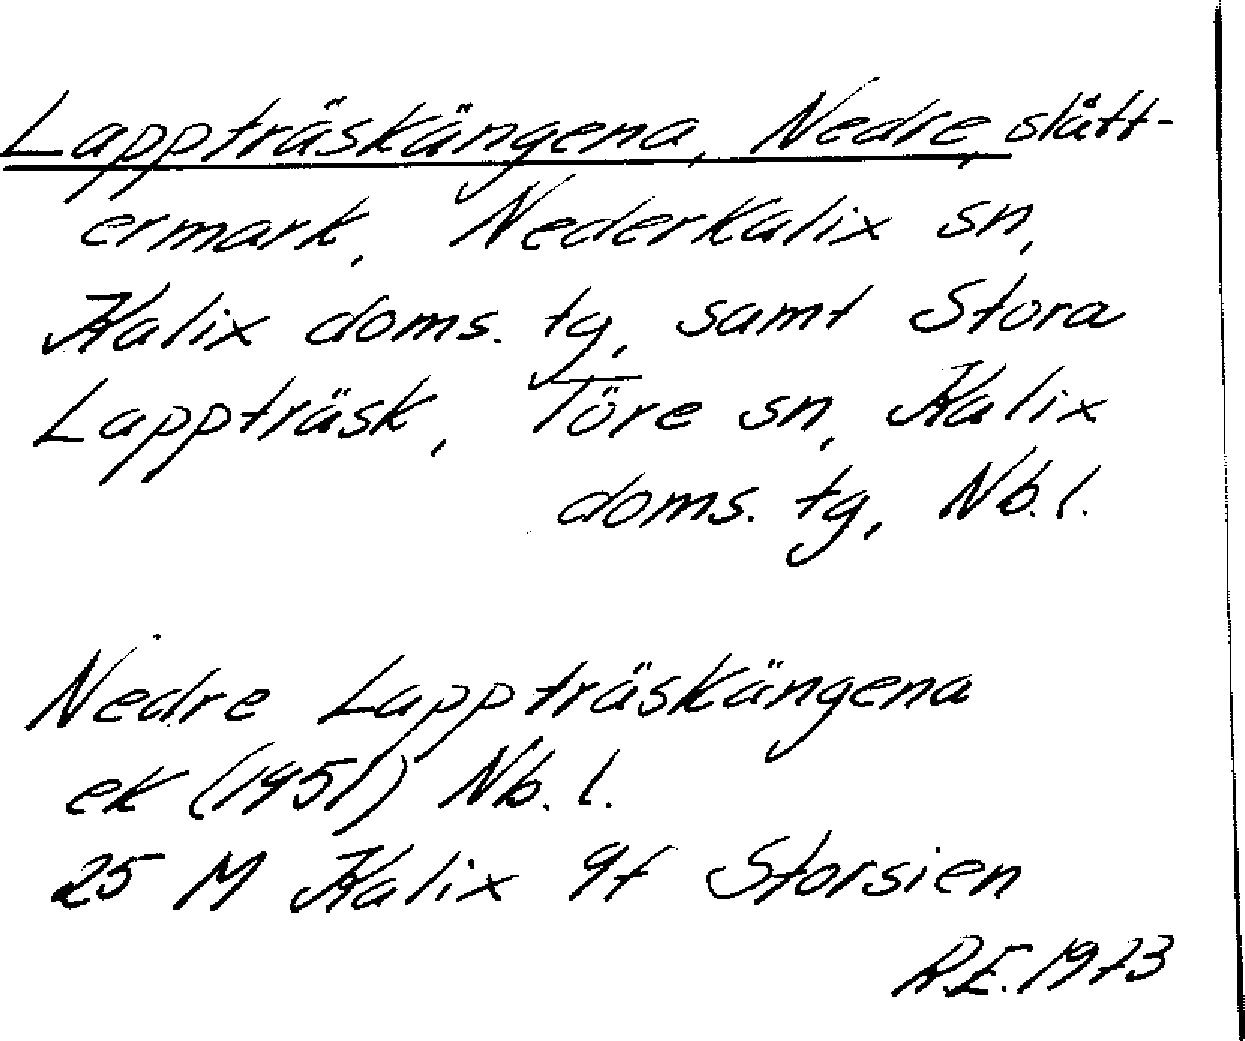 Lappträskängena, Nedre, slått-
ermark, Nederkalix sn,
Kalix doms. tg, samt Stora
Lappträsk, Töre sn, Kalix
doms. tg, Nb. l.
Nedre Lappträskängena
ek (1951) Nb. l.
25 M Kalix 9f Storsien
R.E. 1973